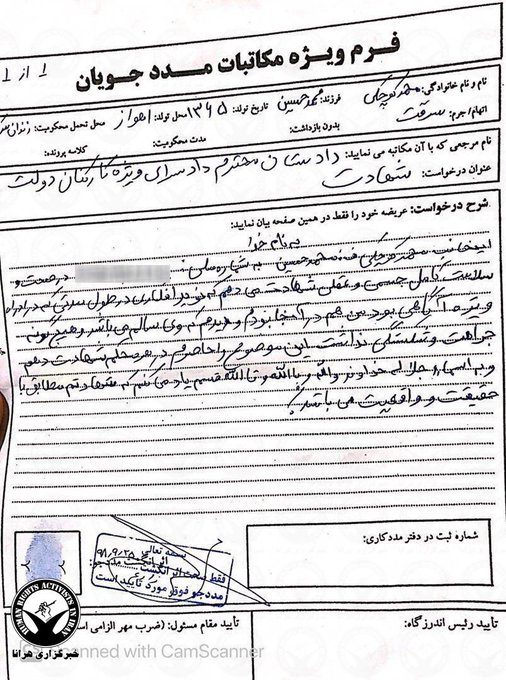 فرم ویژه مکاتبات مدد جویان
۱ از ۱
نام و نام خانوادگی: فرزند: محمدحسین تاریخ تولد: ۱۳۶۵ محل تولد: اهواز محل تحمل محکومیت: زندان
اتهام/جرم: سرقت بدون بازداشت: مدت محکومیت: کلاسه پرونده:
نام مرجعی که با آن مکاتبه می نمایید: دادستان محترم دادسرای ویژه کارکنان دولت
عنوان درخواست: شهادت
شرح درخواست: عریضه خود را فقط در همین صفحه بیان نمایید:
به نام خدا
اینجانب فرزند محمدحسین به شماره ملی در صحت و
سلامت کامل جسمی و عقلی شهادت می دهم که در طول مدتی که در اداره
ویژه آگاهی بود من هم در آنجا بودم و دیدم که وی سالم می باشد و هیچ گونه
جراحت و شکستگی نداشت این موضوع را حاضرم در هر محکمه شهادت دهم
و به اسماء جلاله خداوند والله و بالله و تالله قسم یاد می کنم که شهادتم مطابق با
حقیقت و واقعیت می باشد
شماره ثبت در دفتر مددکاری:
بسمه تعالی
۹۸,۹,۲۵
اثر انگشت مددجو
فقط صحت اثر انگشت
مددجو فوق مورد تأیید است
تأیید رئیس اندرزگاه:
تأیید مقام مسئول: (ضرب مهر الزامی است
HUMAN RIGHTS ACTIVISTS IN IRAN
خبرگزاری هرانا
Scanned with CamScanner